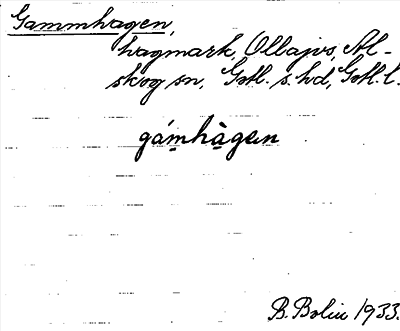 Gammhagen,
hagmark, Ollajvs, Al-
skog sn, Gotl. s. hd, Gotl. l.
gámhàgen
B. Bolin 1933.